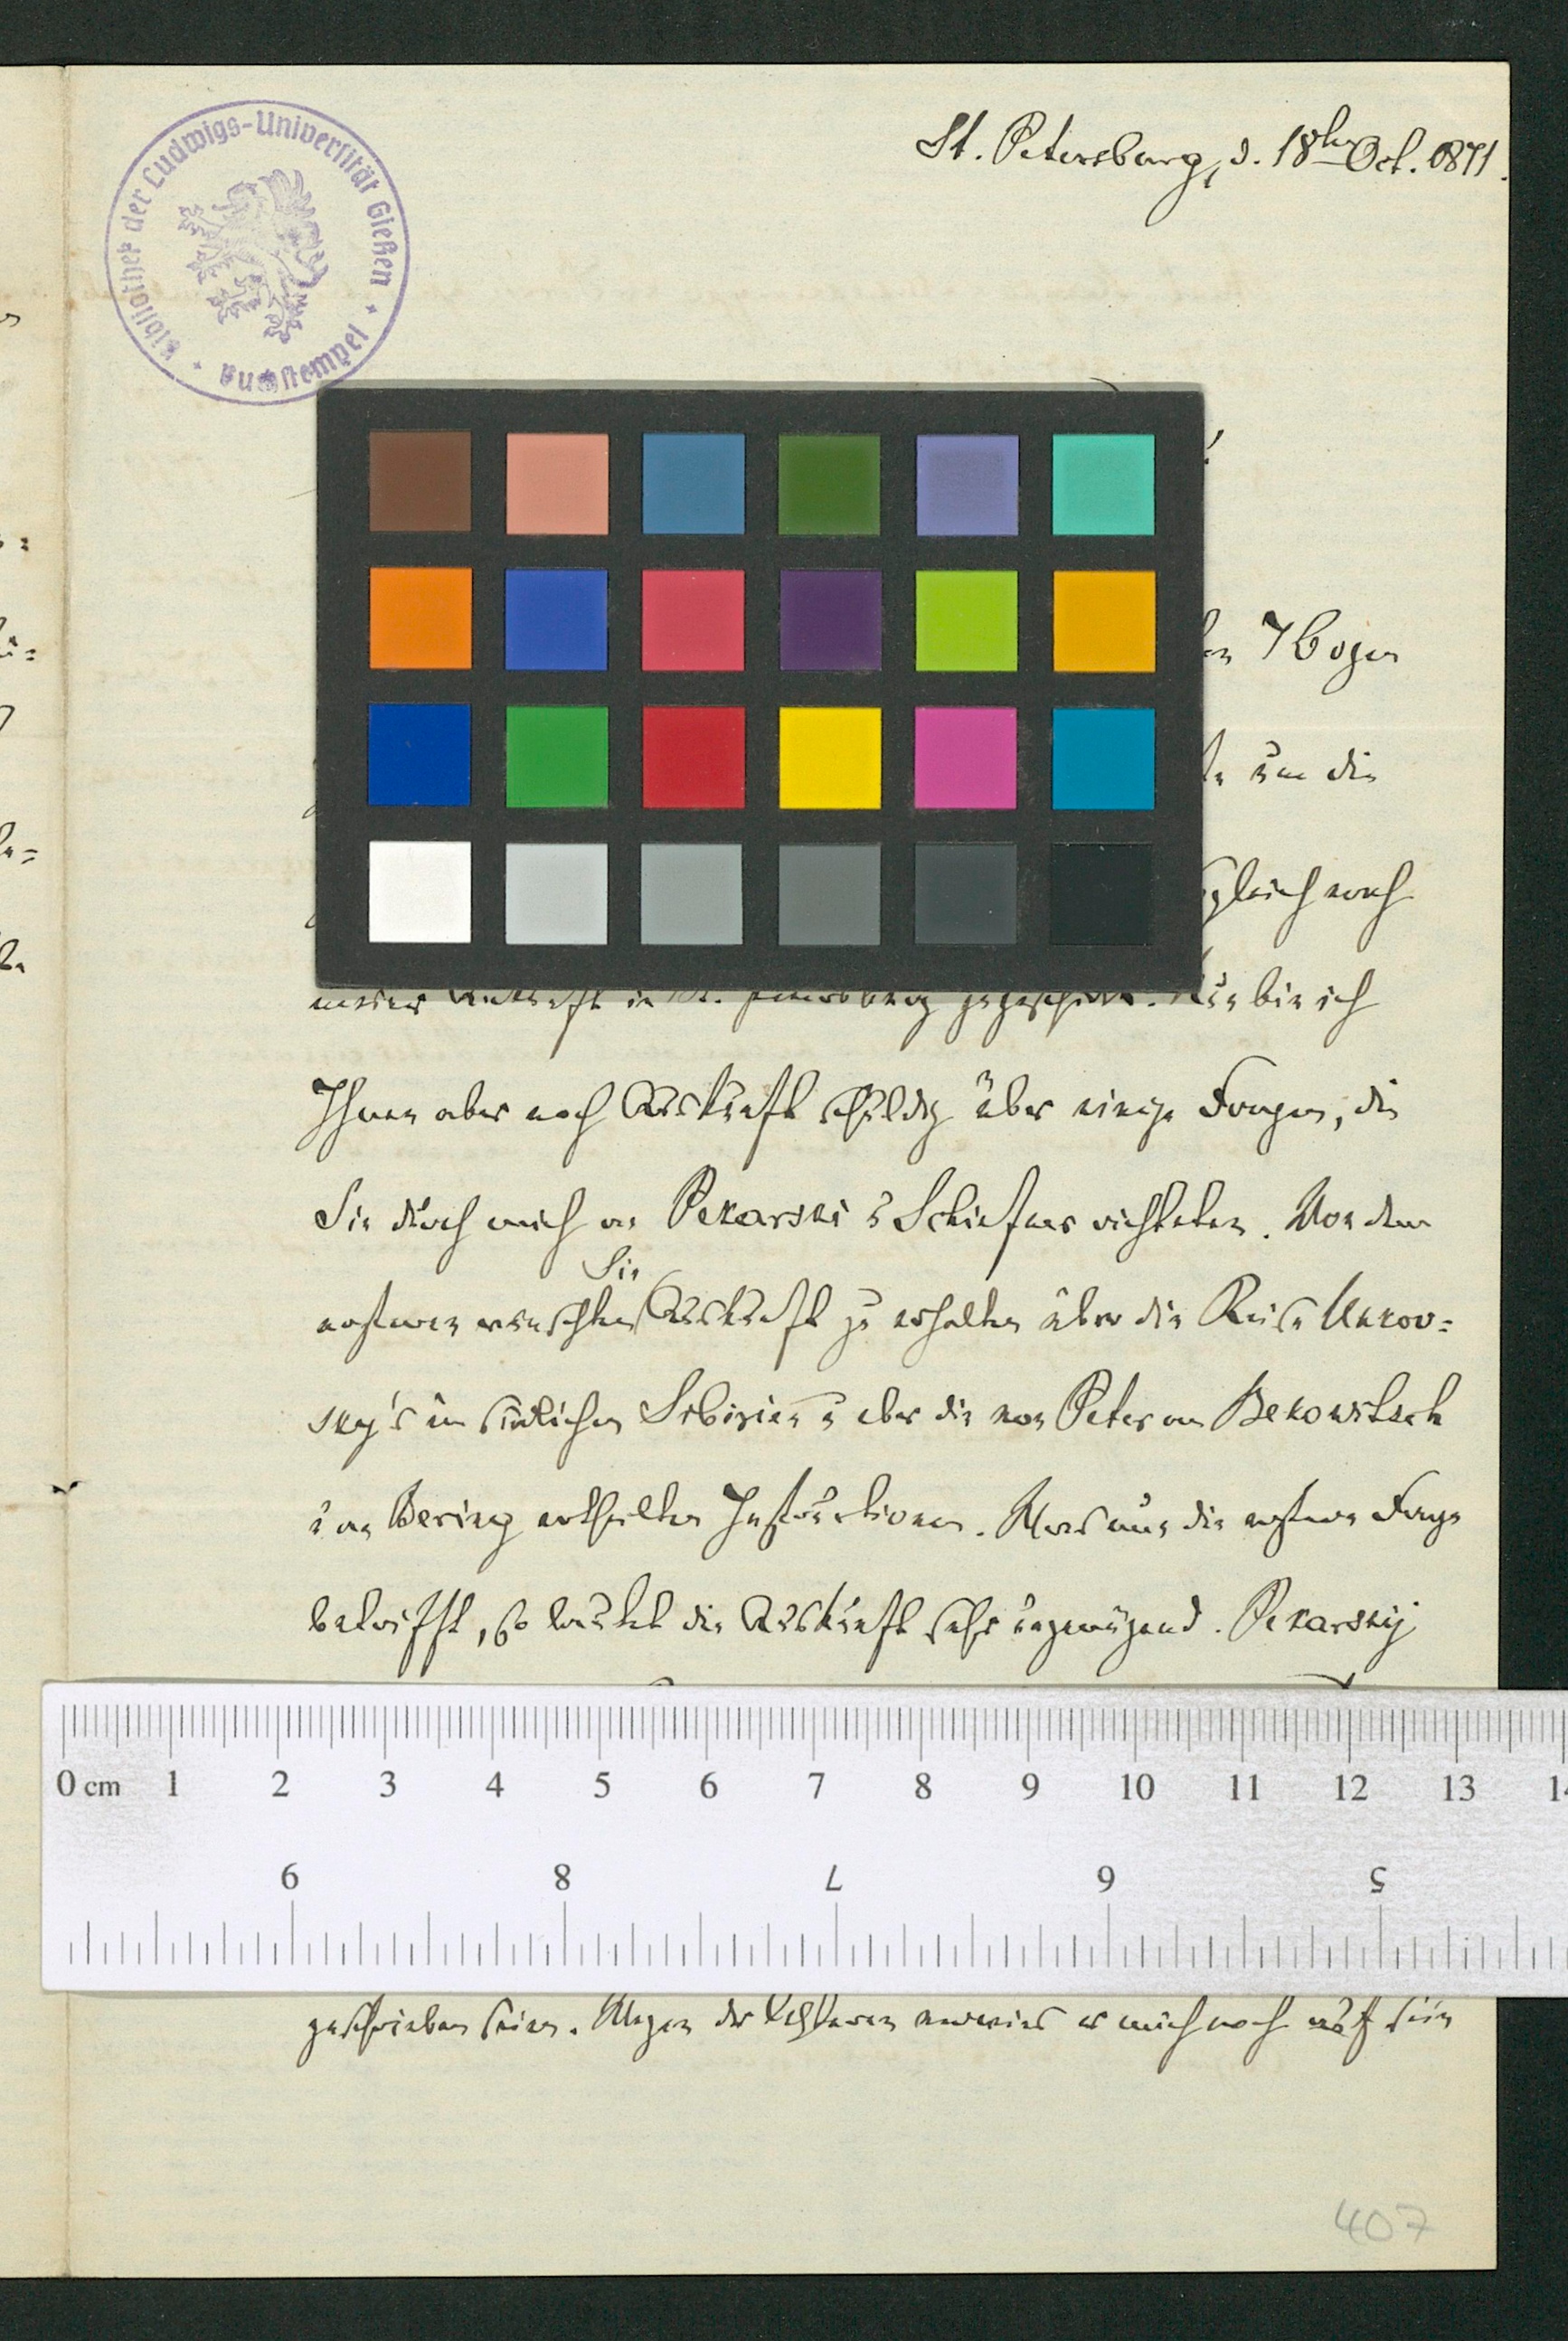 Bibliothek der Ludwigs-Universität Gießen
St. Petersburg, d. 18ten Oct. 1871.
!
7 Bogen
um die
gleich nach
meiner Ankunft in St. Petersburg zugeschickt. Nun bin ich
Ihnen aber noch Auskunft schuldig über einige Fragen, die
Sie durch mich an Pekarski u Schiefner richteten. Von dem
Sie
ersteren wünschten Auskunft zu erhalten über die Reise Unkov=
sky's im südlichen Sibirien u über die von Peter an Bekowitsch
u an Bering ertheilten Instructionen. Was nun die erstere Frage
betrifft, so lautet die Auskunft sehr ungenügend. Pekarskij
0 cm 1 2 3 4 5 6 7 8 9 10 11 12 13
9 8 7 6 5
geschrieben seien. Wegen der letzteren verwies er mich noch auf sein
407